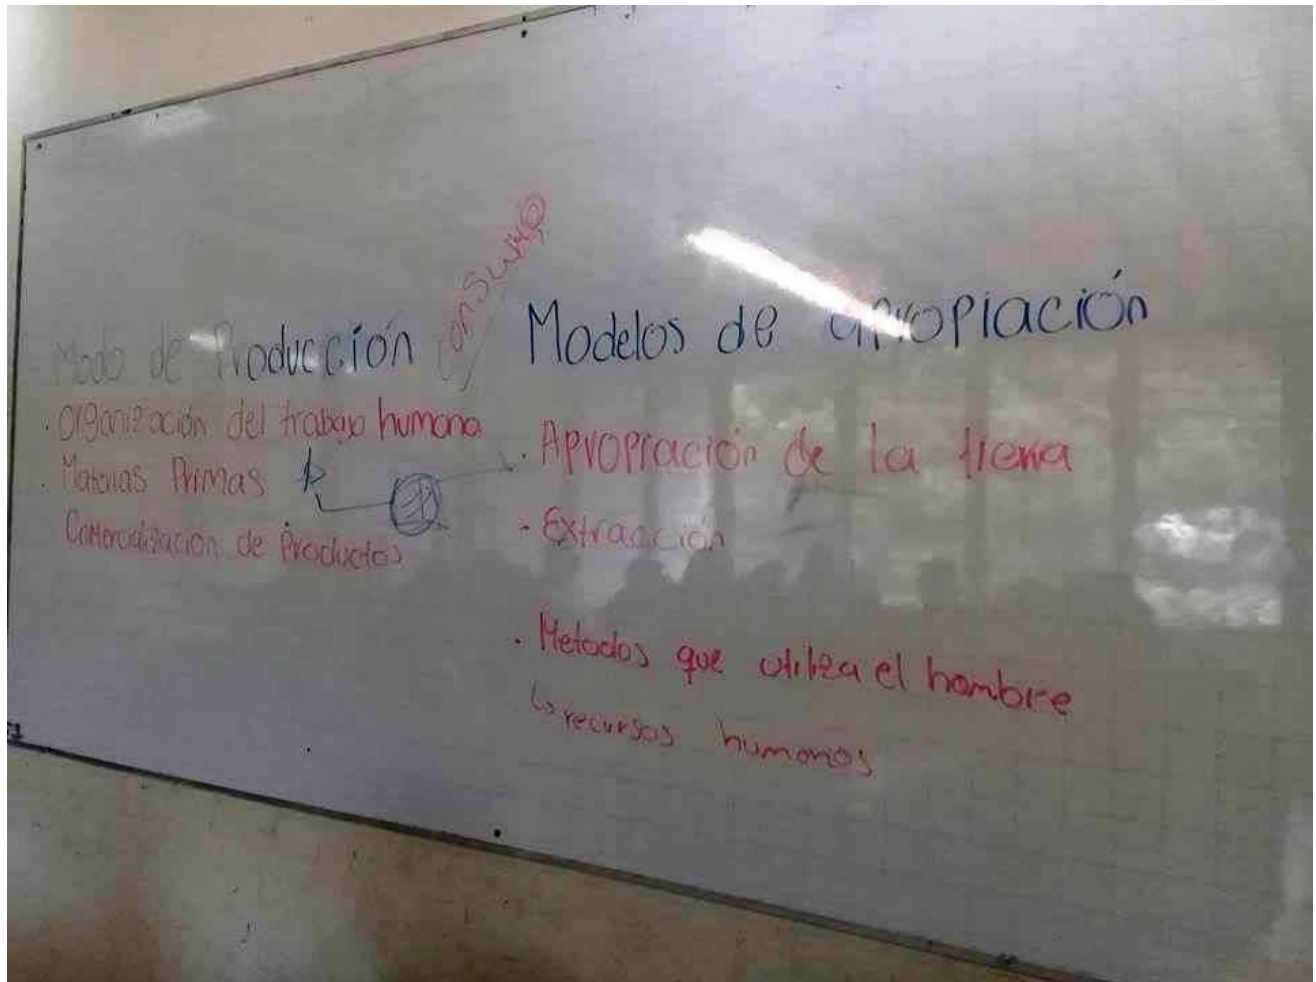 Modo de Producción
consumo
· Organización del trabajo humano
· Materias Primas
Comercialización de Productos
Modelos de apropiación
· Apropiación de la tierra
· Extracción
· Metodos que utiliza el hombre
↳ recursos humanos